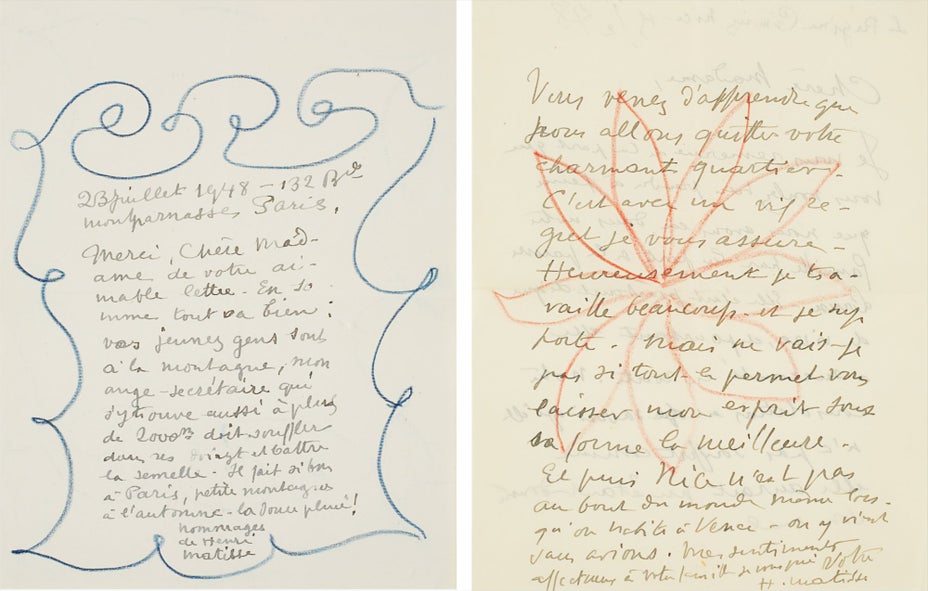 23 juillet 1948 - 132 Bd
montparnasse Paris.
Merci, Chère Mad-
ame de votre ai-
mable lettre. En so
mme tout va bien :
vos jeunes gens sont
à la montagne, mon
ange-secrétaire qui
s'y trouve aussi à plus
de 2000m doit souffler
dans ses doigts et battre
la semelle. Il fait si bon
à Paris, petite montagne
à l'automne - la douce pluie!
hommages
de Henri
matisse
Vous venez d'apprendre que
nous allons quitter votre
charmant quartier.
C'est avec un vif re-
gret je vous assure.
Heureusement je tra-
vaille beaucoup. et je sup
porte. Mais ne vais-je
pas si tout le permet vous
laisser mon esprit sous
sa forme la meilleure.
Et puis Nice n'est pas
au bout du monde même lors-
qu'on habite à Vence - on y vient
sans avions. Mes sentiments
affectueux à votre famille
Votre
H. matisse